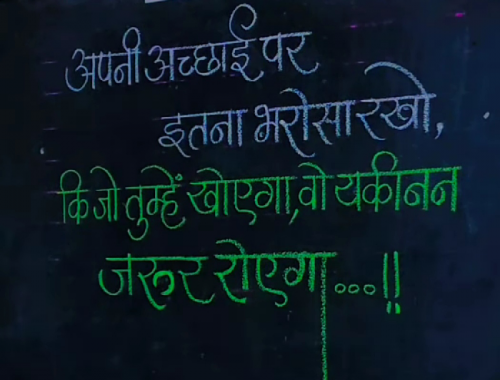 अपनी अच्छाई पर
इतना भरोसा रखो,
कि जो तुम्हें खोएगा, वो यकीनन
जरूर रोएगा...!!